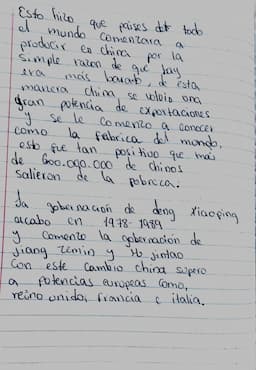 Esto hizo que paises de todo
el mundo comenzara a
producir en China por la
simple razon de que hay
era mas barato, de esta
manera China, se volvio una
gran potencia de exportaciones
y se le comenzo a conocer
como la fabrica del mundo,
esto fue tan positivo que mas
de 600.000.000 de chinos
salieron de la pobreza.
La gobernacion de deng xiaoping
acabo en 1978-1989
y comenzo la gobernacion de
jiang zemin y Hu jintao
Con este cambio china supero
a potencias europeas como,
reino unido, francia e italia.